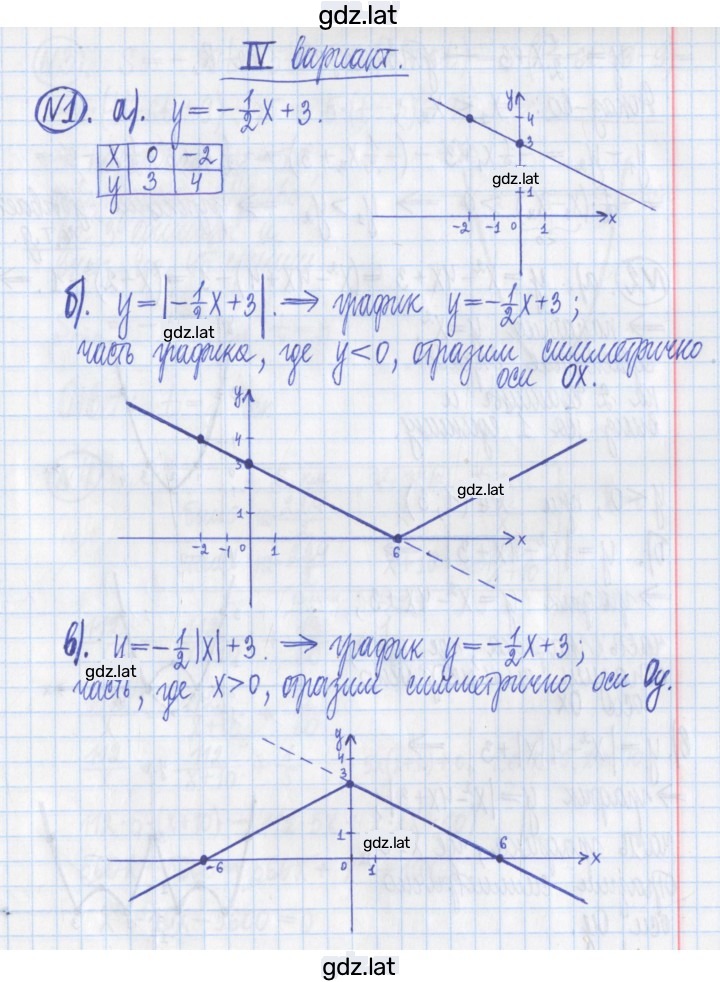 gdz.lat
IV вариант.
№1. а). y = -1/2 x + 3.
x 0 -2
y 3 4
y
4
3
gdz.lat
1
-2 -1 0 1 x
б). y = |-1/2 x + 3|. ⟹ график y = -1/2 x + 3;
gdz.lat
часть графика, где y < 0, отразим симметрично
оси OX.
y
4
3
gdz.lat
1
-2 -1 0 1 6 x
в). y = -1/2 |x| + 3. ⟹ график y = -1/2 x + 3;
gdz.lat
часть, где x > 0, отразим симметрично оси Oy.
y
4
3
1
gdz.lat
6
-6 0 1 x
gdz.lat